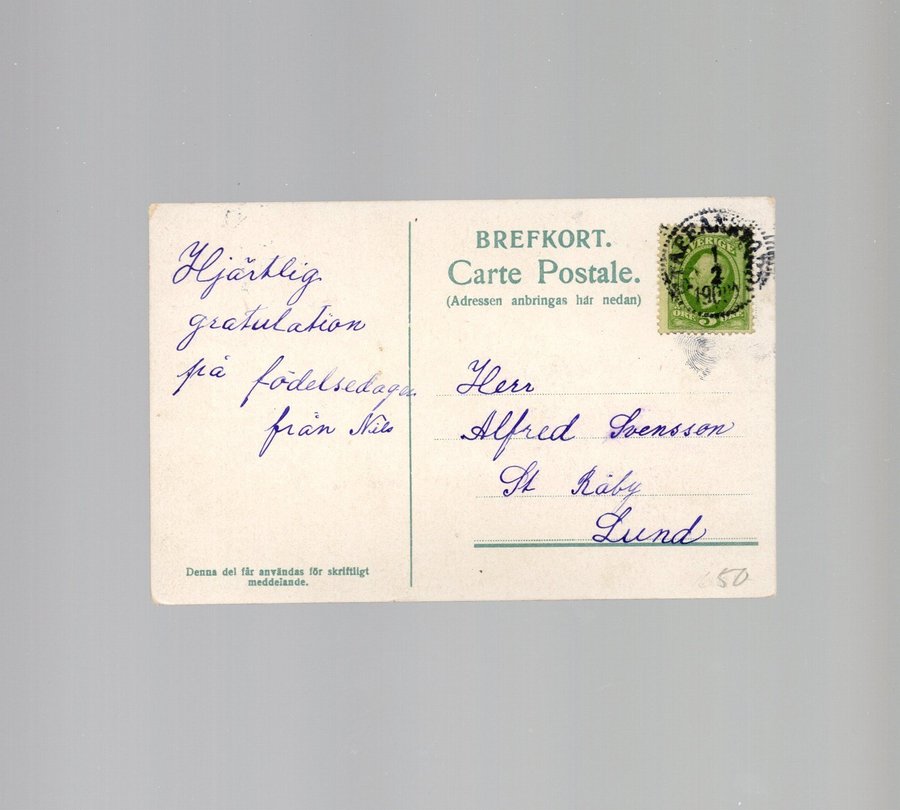 Hjärtlig
gratulation
på födelsedagen
från Nils
Denna del får användas för skriftligt
meddelande.
BREFKORT.
Carte Postale.
(Adressen anbringas här nedan)
SVERIGE
1
2
ÖRE 5
Herr
Alfred Svensson
St Råby
Lund
50